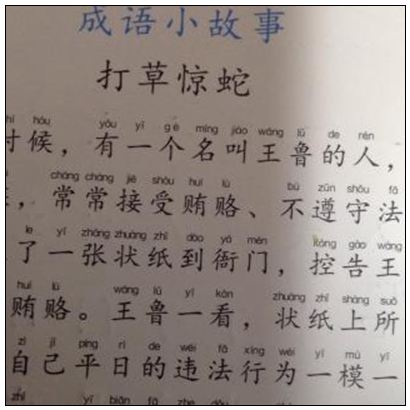 成语小故事
打草惊蛇
hòu yǒu yī gè míng jiào wáng lǔ de rén
时候，有一个名叫王鲁的人，
cháng cháng jiē shòu huì lù bù zūn shǒu fǎ
，常常接受贿赂、不遵守法
le yī zhāng zhuàng zhǐ dào yá mén kòng gào wáng
了一张状纸到衙门，控告王
huì lù wáng lǔ yī kàn zhuàng zhǐ shàng suǒ
贿赂。王鲁一看，状纸上所
zì jǐ píng rì de wéi fǎ xíng wéi yī mú yī
自己平日的违法行为一模一
yī biān fā zhe